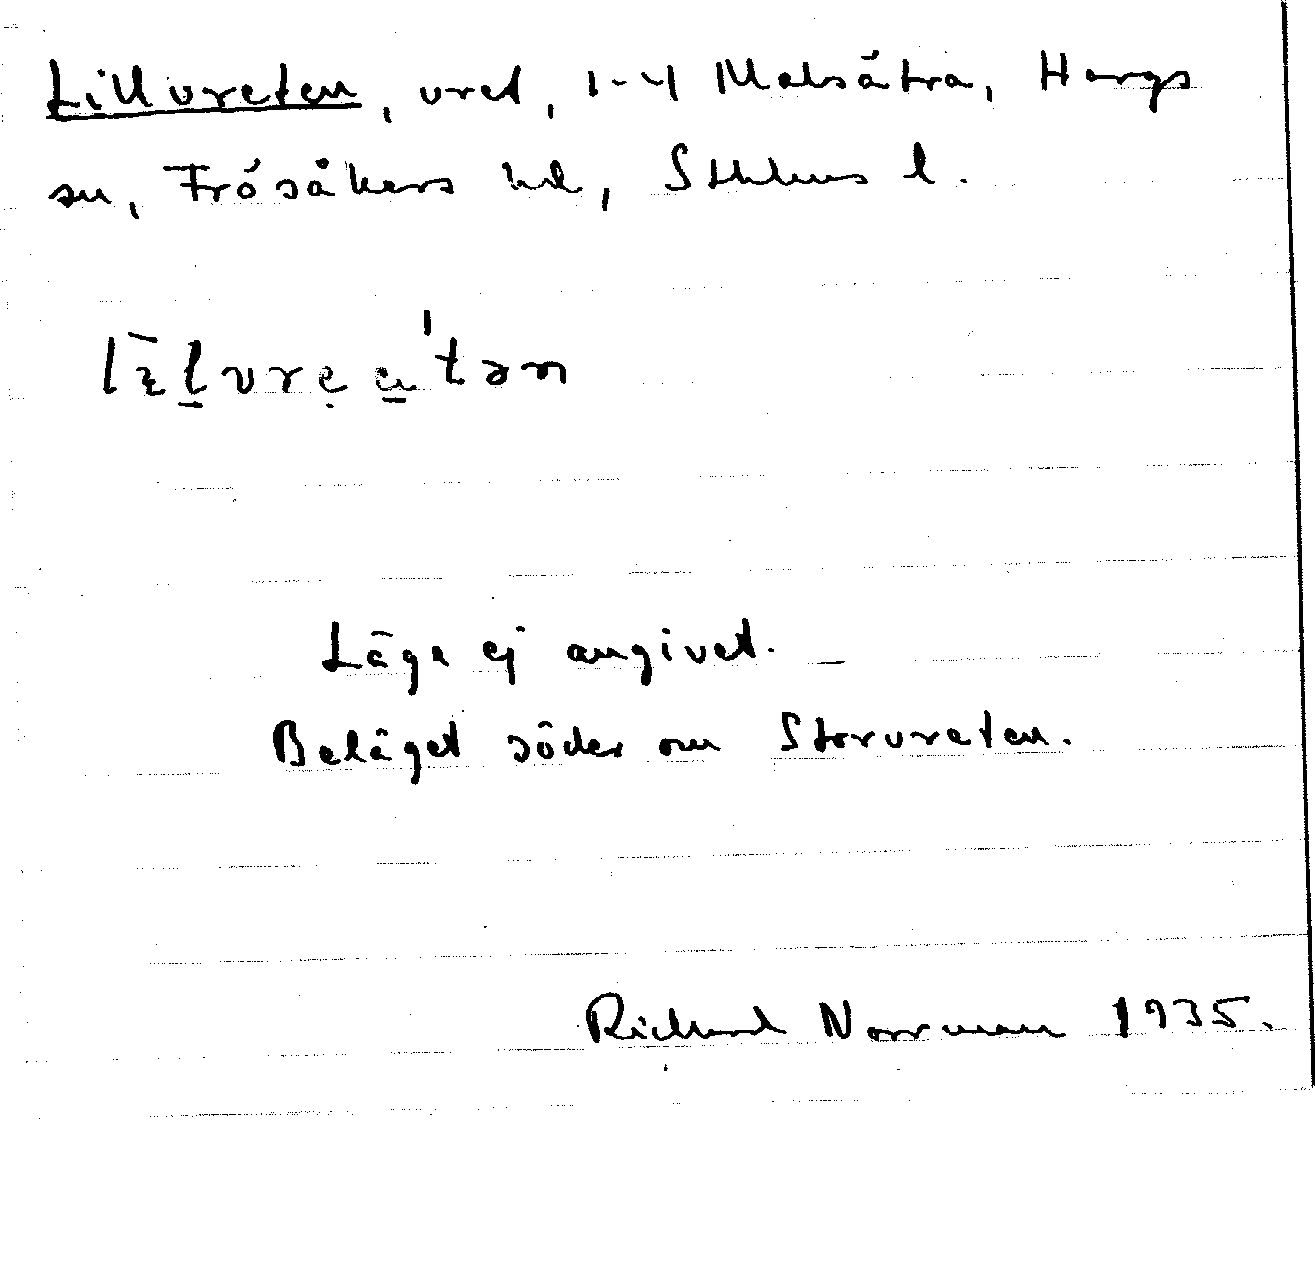 Lillvreten, vret, 1-4 Malsätra, Hargs
sn, Frösåkers hd, Sthlms l.
Läge ej angivet. —
Beläget söder om Storvreten.
Richard Norrman 1935.